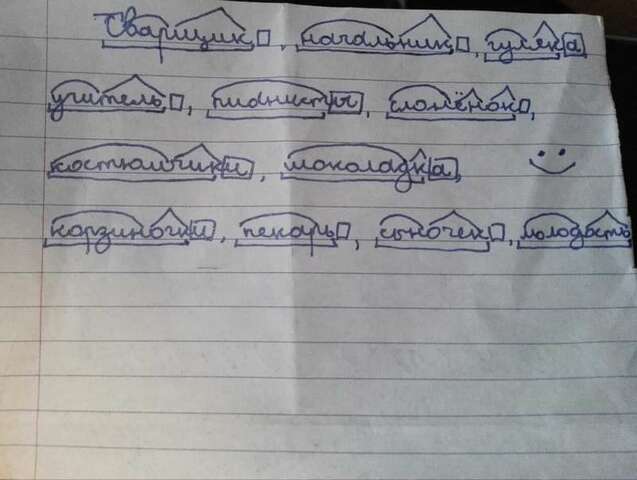 Сварщик, начальник, гуляка
учитель, пианисты, слонёнок,
костюмчики, шоколадка,
корзиночки, пекарь, сыночек, молодость